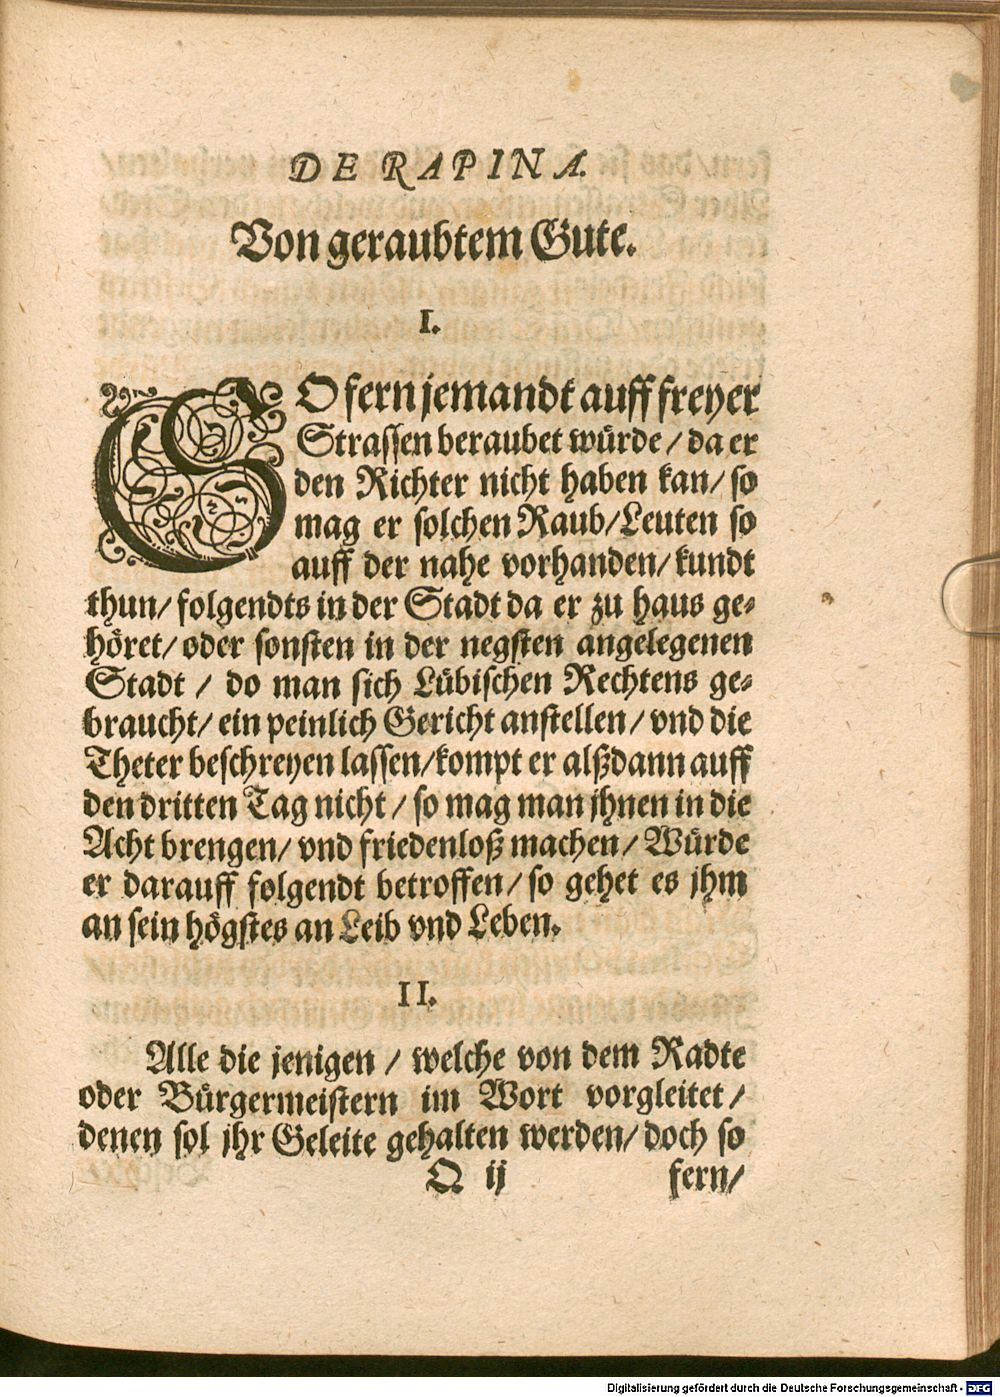 DE RAPINA.
Von geraubtem Gute.
I.
SO fern jemandt auff freyer
Strassen beraubet würde / da er
den Richter nicht haben kan / so
mag er solchen Raub / Leuten so
auff der nahe vorhanden / kundt
thun / folgendts in der Stadt da er zu haus ge-
höret / oder sonsten in der negsten angelegenen
Stadt / do man sich Lübischen Rechtens ge-
braucht / ein peinlich Gericht anstellen / vnd die
Theter beschreyen lassen / kompt er alßdann auff
den dritten Tag nicht / so mag man jhnen in die
Acht brengen / vnd friedenloß machen / Würde
er darauff folgendt betroffen / so gehet es jhm
an sein högstes an Leib vnd Leben.
II.
Alle die jenigen / welche von dem Radte
oder Bürgermeistern im Wort vorgleitet /
denen sol jhr Geleite gehalten werden / doch so
Q ij fern /
Digitalisierung gefördert durch die Deutsche Forschungsgemeinschaft - DFG